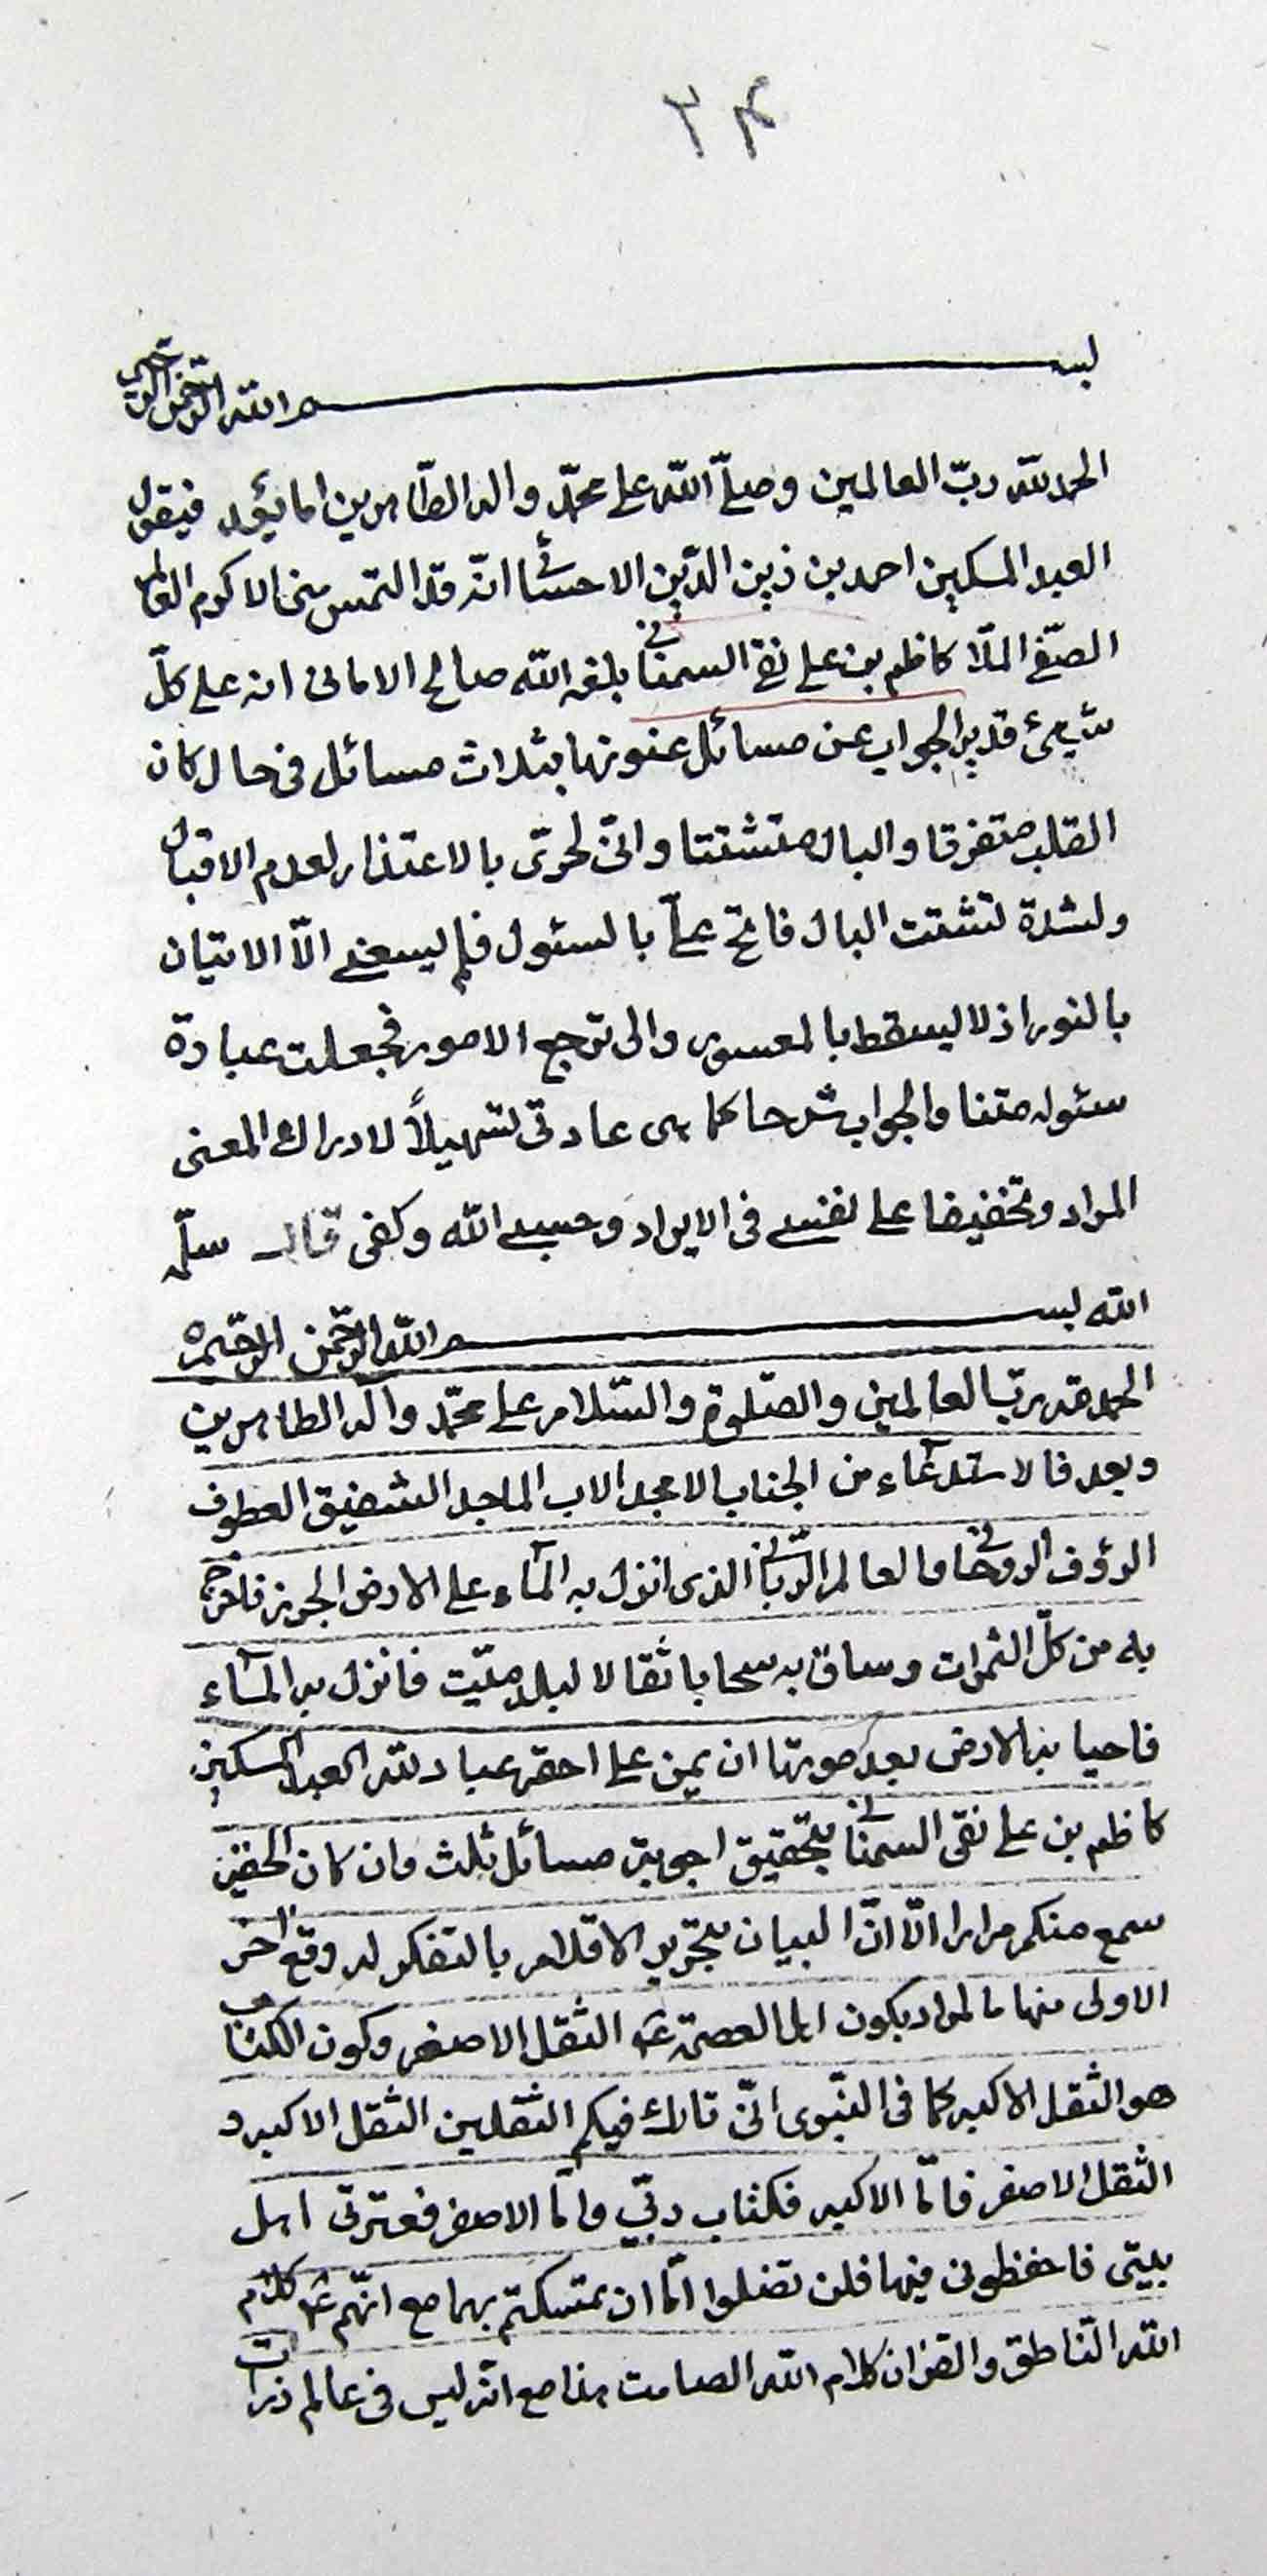 ٣٤
بسم الله الرحمن الرحيم
الحمد لله ربّ العالمين وصلّى الله على محمّد واله الطّاهرين اما بعد فيقول
العبد المسكين احمد بن زين الدّين الاحسائى انّه قد التمس منى الاكرم العالم
الصّفى الملّا كاظم بن على نقى السمنانى بلغه الله صالح الامانى انه على كلّ
شىء قدير الجواب عن مسائل عنونها بثلاث مسائل فى حال كان
القلب متفرقا والبال متشتتا وانى لحرىّ بالاعتذار لعدم الاقبال
ولشدة تشتت البال فالح علىّ بالسئول فلم يسعنى الّا الاتيان
بالميسور اذ لا يسقط بالمعسور والى الله ترجع الامور فجعلت عبارة
سئوله متنا والجواب شرحا كما هى عادتى تسهيلاً لادراك المعنى
المراد وتخفيفا على نفسى فى الايراد وحسبى الله وكفى قال سلّمه
الله بسم الله الرحمن الرحيم
الحمد لله ربّ العالمين والصّلوة والسّلام على محمّد وآله الطاهرين
وبعد فالاستدعاء من الجناب الامجد الاب الماجد الشفيق العطوف
الرؤف الروحانى والعالم الرّبانى الذى انزل به المآء على الارض الجرز فاخرج
به من كلّ الثمرات وساق به سحابا ثقالا لبلد ميّت فانزل به المآء
فاحيا به الارض بعد موتها ان يمن على احقر عباد لله العبد المسكين
كاظم بن على نقى السمنانى بتحقيق اجوبة مسائل ثلث وان كان الحقير
سمع منكم مرارا الّا انّ البيان بتحرير الاقلام بالتفكر له وقع اخر
الاولى منها ما المراد بكون اهل العصمة ع الثقل الاصغر وكون الكتاب
هو الثقل الاكبر كما فى النّبوى انّى تارك فيكم الثقلين الثقل الاكبر و
الثقل الاصغر فامّا الاكبر فكتاب ربّى وامّا الاصغر فعترتى اهل
بيتى فاحفظونى فيهما فلن تضلوا امّا ان تمسكتم بهما مع انّهم ع كلام
الله النّاطق والقرآن كلام الله الصامت هذا مع انّه ليس فى عالم ذرات